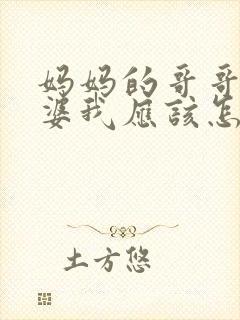 妈妈的哥哥
婆我应该怎
土方悠